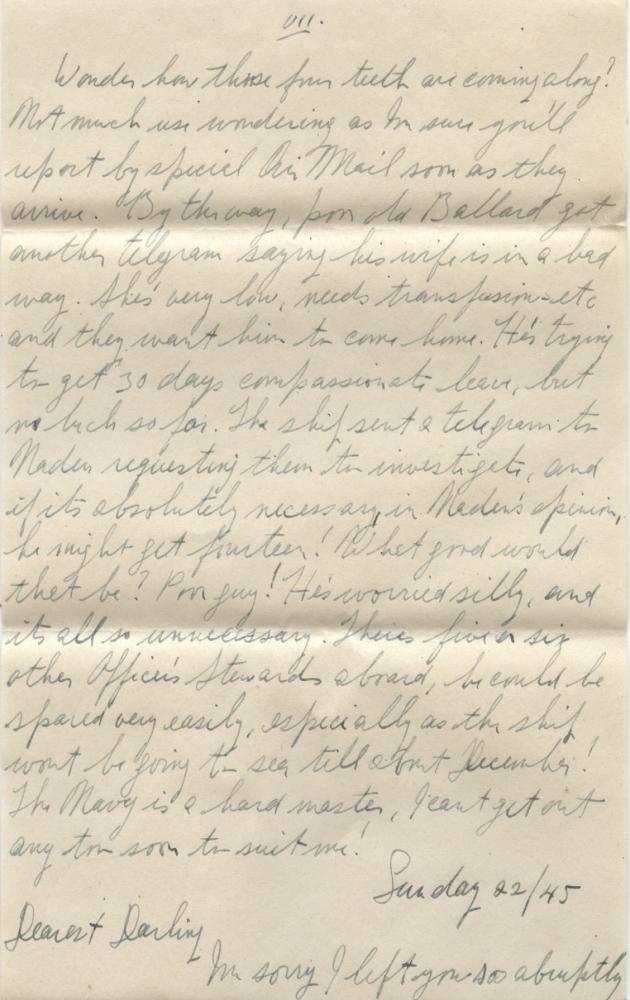 VII.
Wonder how those four teeth are coming along?
Not much use wondering as I'm sure you'll
report by special Air Mail soon as they
arrive. By the way, poor old Ballard got
another telegram saying his wife is in a bad
way. She's very low, needs transfusion - etc
and they want him to come home. He's trying
to get 30 days compassionate leave, but
no luck so far. The ship sent a telegram to
Naden requesting them to investigate, and
if its absolutely necessary, in Naden's opinion,
he might get fourteen! What good would
that be? Poor guy! He's worried silly, and
its all so unnecessary. There's five or six
other Officer's Stewards aboard, he could be
spared very easily, especially as the ship
wont be going to sea till about December!
The Navy is a hard master, I cant get out
any too soon to suit me!
Sunday 22/45
Dearest Darling
I'm sorry I left you so abruptly